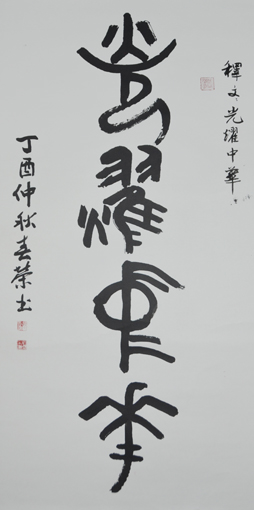 釋文光耀中華
光耀中華
丁酉仲秋春榮书